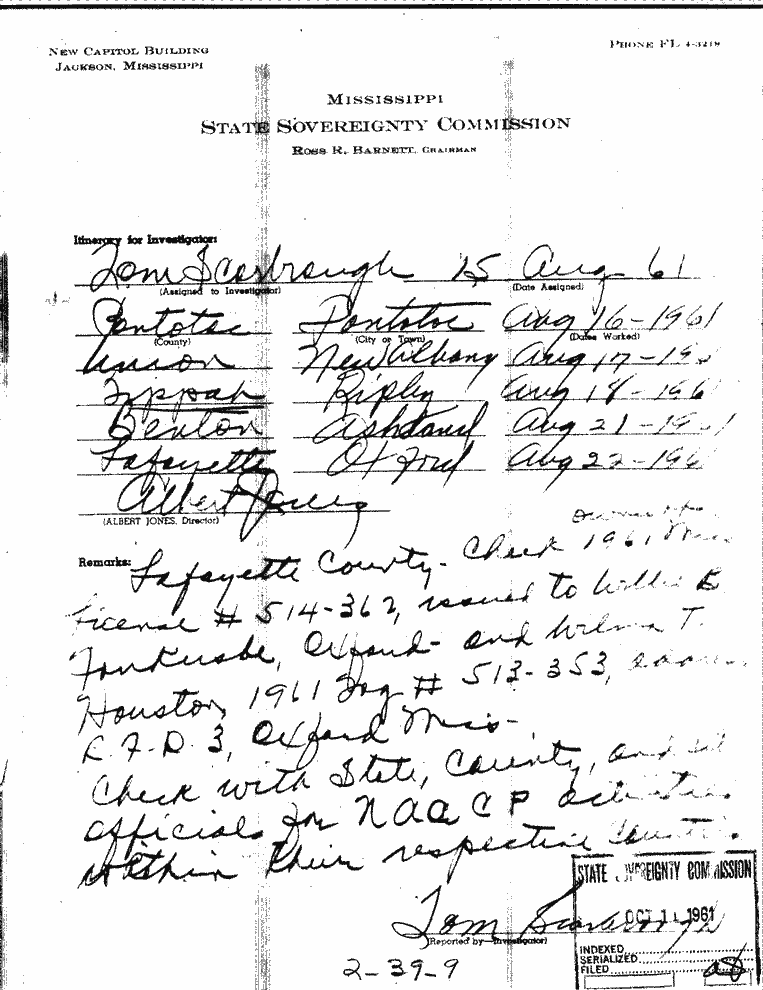 NEW CAPITOL BUILDING
JACKSON, MISSISSIPPI
PHONE FL 4-3218
MISSISSIPPI
STATE SOVEREIGNTY COMMISSION
ROSS R. BARNETT, CHAIRMAN
Itinerary for Investigator:
Tom Scarbrough 15 Aug 61
(Assigned to Investigator) (Date Assigned)
Pontotoc Pontotoc Aug 16-1961
(County) (City or Town) (Dates Worked)
Union New Albany Aug 17-19
Tippah Ripley Aug 18-196
Benton Ashland Aug 21-19 1
Lafayette Oxford Aug 22-196
Albert Jones
(ALBERT JONES, Director)
Remarks: Lafayette County- Check 1961 Miss
License # 514-362, issued to Willie B
Oxford- and Wilma T.
Houston, 1961 Tag # 513-353,
R.F.D. 3, Oxford Miss-
Check with State, County, and
officials for NAACP activities
within their respective Counties.
STATE SOVEREIGNTY COMMISSION
OCT 11 1961
Tom Scarbrough
(Reported by Investigator)
INDEXED
SERIALIZED
FILED
2-39-9